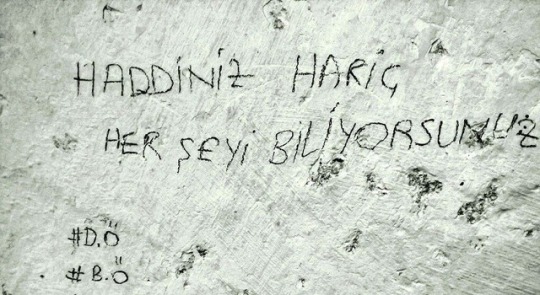 HADDİNİZ HARİÇ
HER ŞEYİ BİLİYORSUNUZ
#D.Ö
#B.Ö